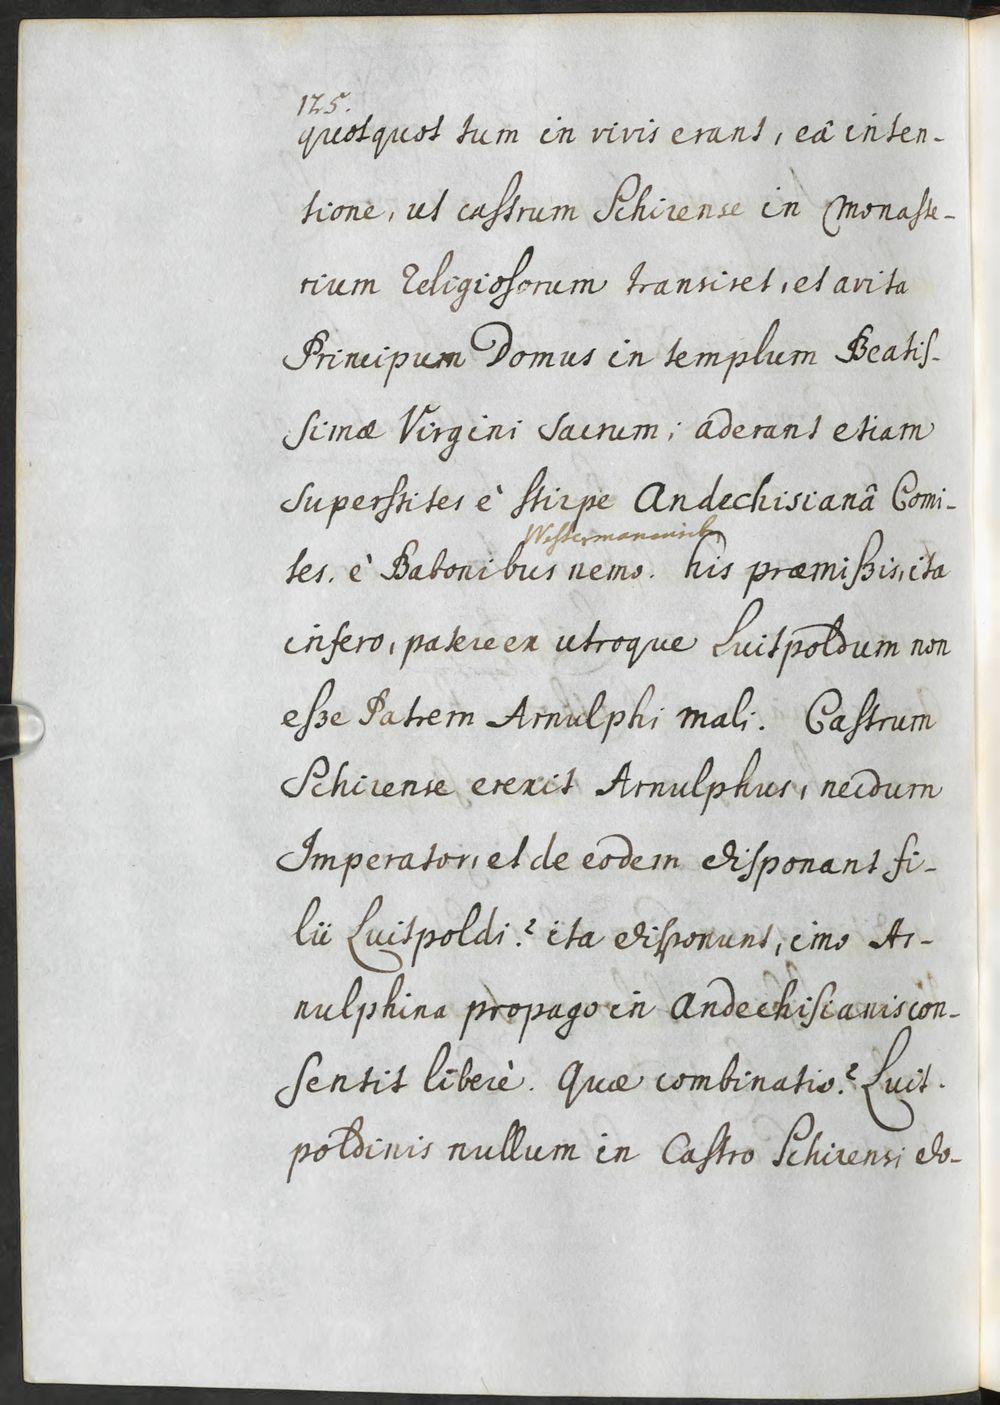 125.
quotquot tum in vivis erant, eâ inten-
tione, ut castrum Schirense in Monaste-
rium Religiosorum transiret, et avita
Principum Domus in templum Beatis-
simæ Virgini sacrum; aderant etiam
superstites è stirpe Andechisianâ Comi-
tes. è Babonibus nemo. his præmißis, ita
infero, patere ex utroque Luitpoldum non
eße Patrem Arnulphi mali. Castrum
Schirense erexit Arnulphus, necdum
Imperator, et de eodem disponant fi-
lii Luitpoldi? ita disponunt, imo Ar-
nulphina propago in Andechisianis con-
sentit liberè. Quæ combinatio? Luit-
poldinis nullum in Castro Schirensi do-